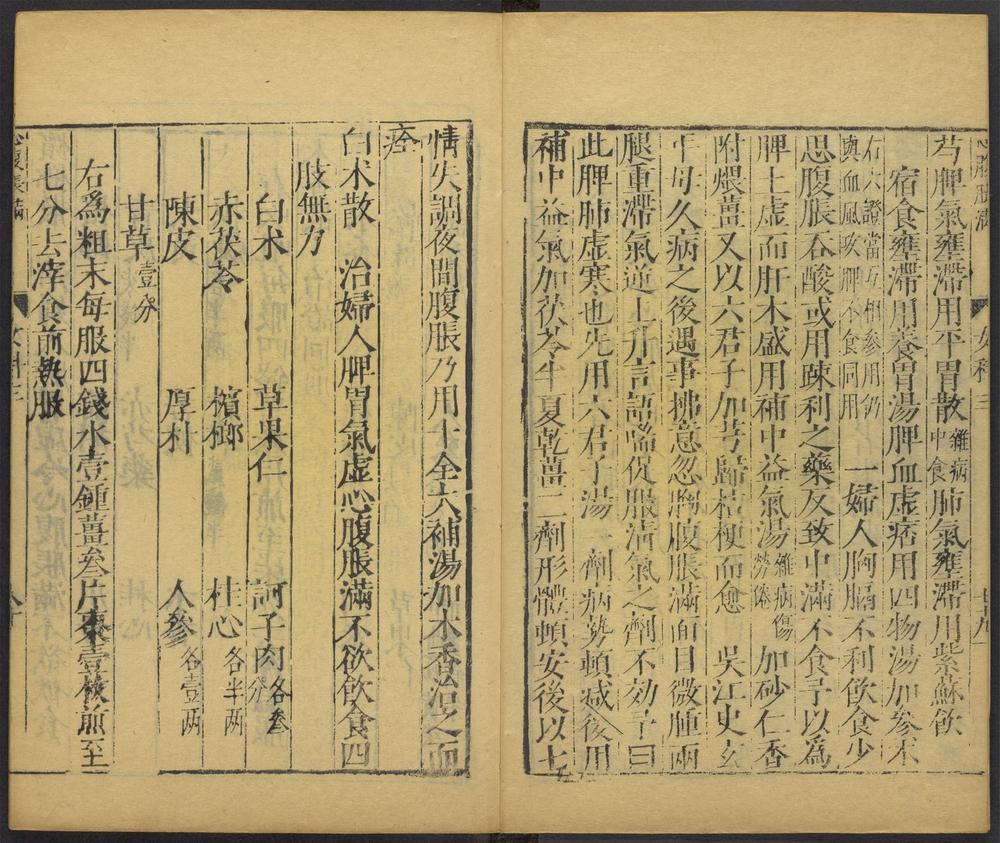 心腹脹滿 女科三 七十九
芎脾氣壅滯用平胃散雜病中食肺氣壅滯用紫蘇飲
宿食壅滯用養胃湯脾血虛痞用四物湯加參朮
右六證當互相參用仍與血風攻脾不食同用 一婦人胸膈不利飲食少
思腹脹吞酸或用疎利之藥反致中滿不食予以為
脾土虛而肝木盛用補中益氣湯雜病勞倦傷加砂仁香
附煨薑又以六君子加芎歸桔梗而愈 吳江史玄
年母久病之後遇事拂意忽胸腹脹滿面目微腫兩
腿重滯氣逆上升言語喘促服清氣之劑不効予曰
此脾肺虛寒也先用六君子湯一劑病勢頓減後用
補中益氣加茯苓半夏乾薑二劑形體頓安後以七
情失調夜間腹脹乃用十全大補湯加木香治之而
痊
白朮散 治婦人脾胃氣虛心腹脹滿不欲飲食四
肢無力
白朮 草果仁 訶子肉各叁分
赤茯苓 檳榔 桂心各半两
陳皮 厚朴 人參各壹两
甘草壹分
右為粗末每服四錢水壹鍾薑叁片棗壹枚煎至
七分去滓食前熱服
心腹脹滿 女科三